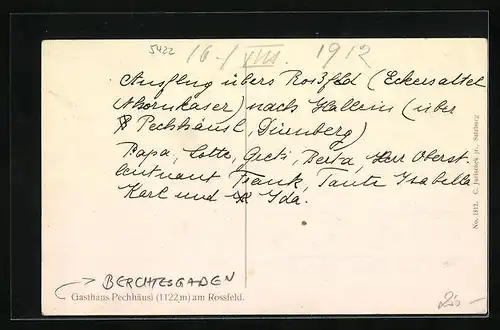 5422
16./VIII. 1912
Ausflug übers Roßfeld (Eckersattel
Ahornkaser) nach Hallein (über
Pechhäusl, Dürnberg)
Papa, Lotte, Greti, Berta, Herr Oberst-
leutnant Frank, Tante Isabella
Karl und Ida.
No. 1912. C. Jurischek jr., Salzburg
→ BERCHTESGADEN
Gasthaus Pechhäusl (1122 m) am Rossfeld.